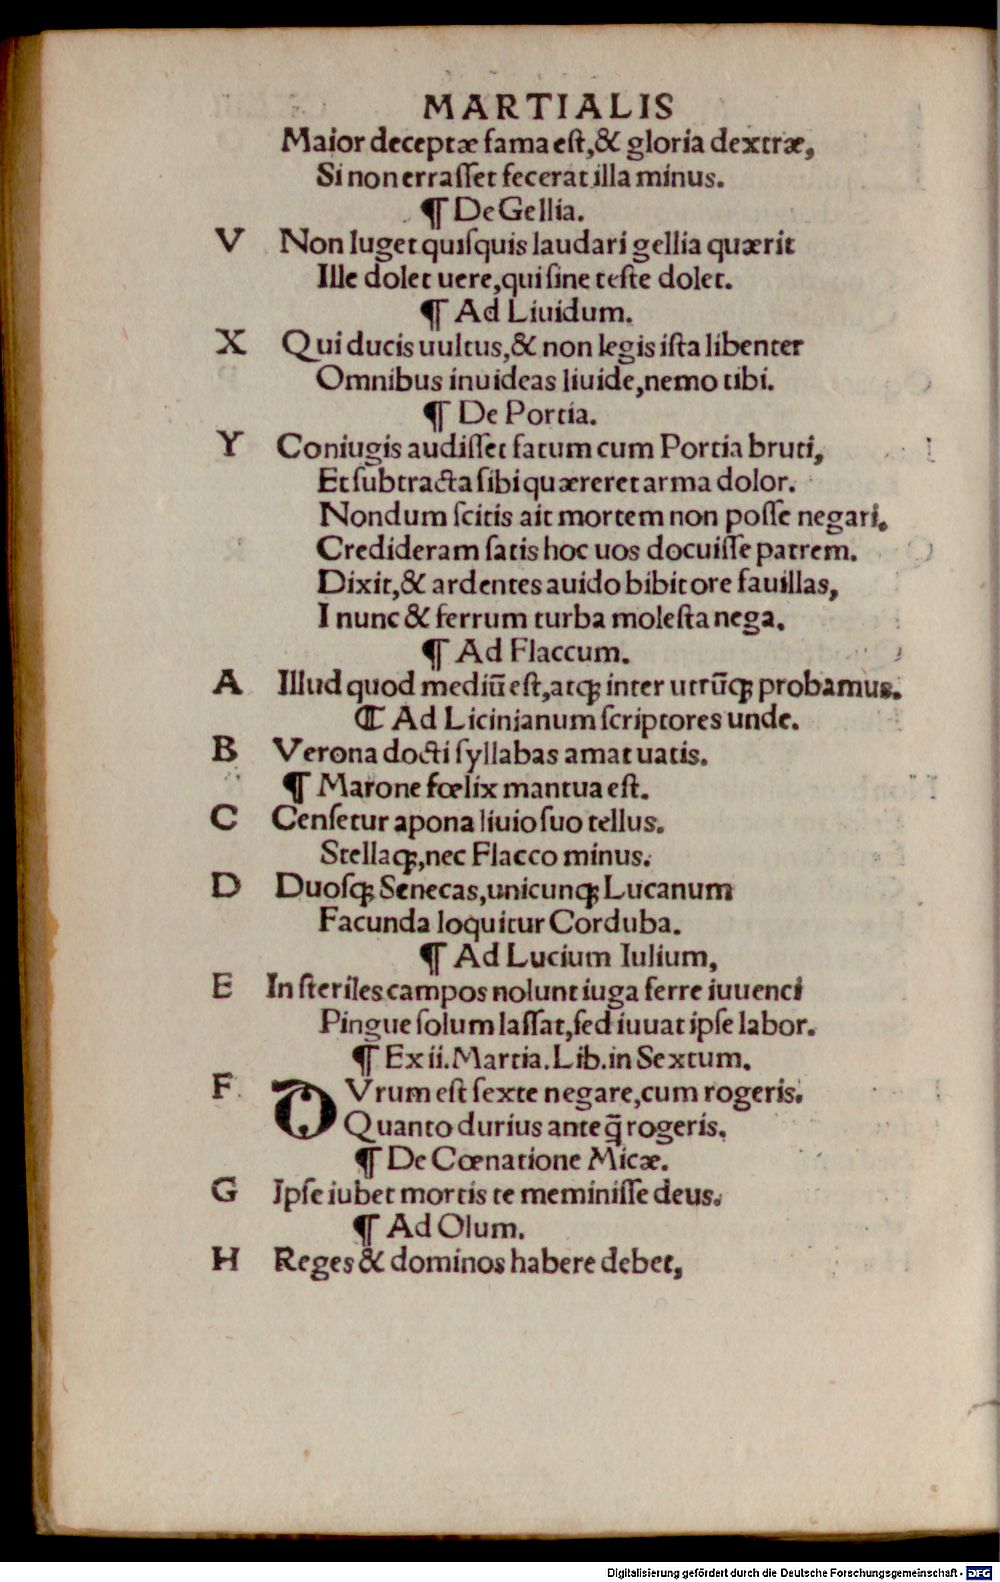 MARTIALIS
Maior deceptæ fama eſt,& gloria dextræ,
Si non erraſſet fecerat illa minus.
¶ De Gellia.
V Non luget quiſquis laudari gellia quærit
Ille dolet uere,qui ſine teſte dolet.
¶ Ad Liuidum.
X Qui ducis uultus,& non legis iſta libenter
Omnibus inuideas liuide,nemo tibi.
¶ De Portia.
Y Coniugis audiſſet fatum cum Portia bruti,
Et ſubtracta ſibi quæreret arma dolor.
Nondum ſcitis ait mortem non poſſe negari.
Credideram ſatis hoc uos docuiſſe patrem.
Dixit,& ardentes auido bibit ore fauillas,
I nunc & ferrum turba moleſta nega.
¶ Ad Flaccum.
A Illud quod mediū eſt,atqꝫ inter utrūqꝫ probamus.
⁋ Ad Licinianum ſcriptores unde.
B Verona docti ſyllabas amat uatis.
¶ Marone fœlix mantua eſt.
C Cenſetur apona liuio ſuo tellus.
Stellaqꝫ,nec Flacco minus.
D Duoſqꝫ Senecas,unicunqꝫ Lucanum
Facunda loquitur Corduba.
¶ Ad Lucium Iulium,
E In ſteriles campos nolunt iuga ferre iuuenci
Pingue ſolum laſſat,ſed iuuat ipſe labor.
¶ Ex ii.Martia.Lib.in Sextum.
F DVrum eſt ſexte negare,cum rogeris.
Quanto durius ante q̄ rogeris.
¶ De Cœnatione Micæ.
G Ipſe iubet mortis te meminiſſe deus.
¶ Ad Olum.
H Reges & dominos habere debet,
Digitalisierung gefördert durch die Deutsche Forschungsgemeinschaft - DFG